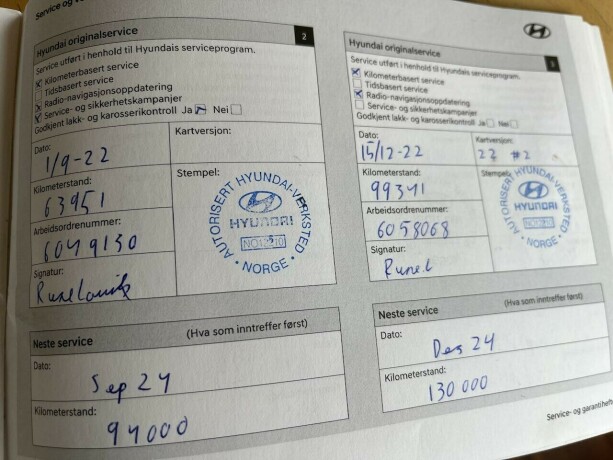 Service og
2
Hyundai originalservice
Service utført i henhold til Hyundais serviceprogram.
Kilometerbasert service
Tidsbasert service
Radio-navigasjonsoppdatering
Service- og sikkerhetskampanjer
Godkjent lakk- og karosserikontroll Ja Nei
Dato:
1/9-22
Kartversjon:
Kilometerstand:
63951
Stempel:
AUTORISERT HYUNDAI-VERKSTED
HYUNDAI
NORGE
Arbeidsordrenummer:
6049130
Signatur:
Neste service (Hva som inntreffer først)
Dato:
Sep 24
Kilometerstand:
94000
3
Hyundai originalservice
Service utført i henhold til Hyundais serviceprogram.
Kilometerbasert service
Tidsbasert service
Radio-navigasjonsoppdatering
Service- og sikkerhetskampanjer
Godkjent lakk- og karosserikontroll Ja Nei
Dato:
15/12-22
Kartversjon:
22 #2
Kilometerstand:
99341
Stempel:
AUTORISERT HYUNDAI-VERKSTED
HYUNDAI
NORGE
Arbeidsordrenummer:
6058068
Signatur:
Rune.L
Neste service (Hva som inntreffer først)
Dato:
Des 24
Kilometerstand:
130 000
Service- og garantihef